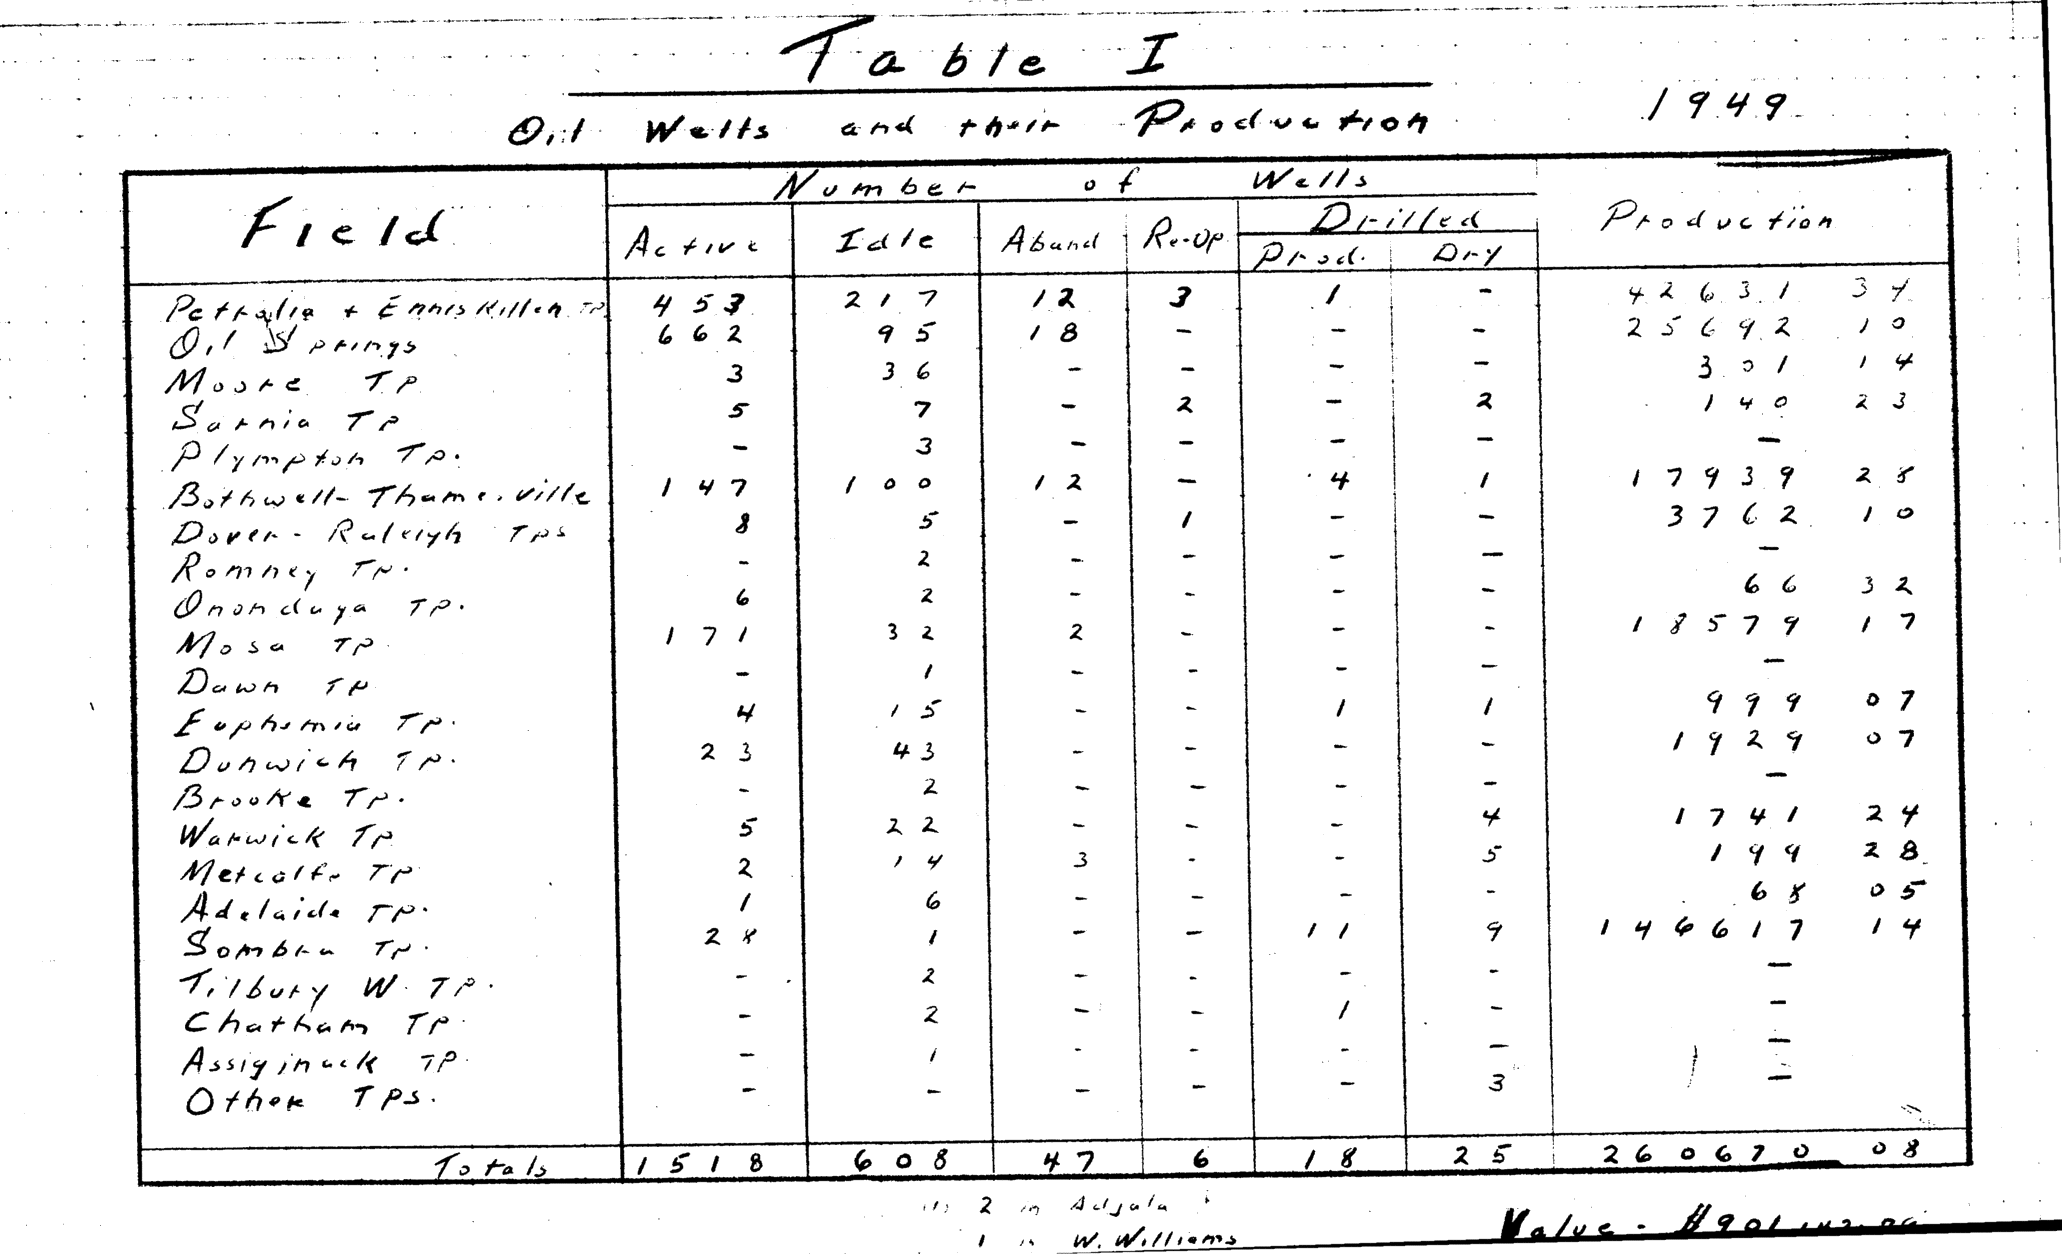 Table I
Oil Wells and their Production 1949
Field Number of Wells Production
Active Idle Aband Re-Op Drilled
Prod. Dry
Petrolia + Enniskillen TP 453 217 12 3 1 - 42631 34
Oil Springs 662 95 18 - - - 25692 10
Moore TP 3 36 - - - - 301 14
Sarnia TP 5 7 - 2 - 2 140 23
Plympton TP. - 3 - - - - -
Bothwell-Thamesville 147 100 12 - 4 1 17939 28
Dover-Raleigh TPs 8 5 - 1 - - 3762 10
Romney TP. - 2 - - - - -
Onondaga TP. 6 2 - - - - 66 32
Mosa TP. 171 32 2 - - - 18579 17
Dawn TP - 1 - - - - -
Euphemia TP. 4 15 - - 1 1 999 07
Dunwich TP. 23 43 - - - - 1929 07
Brooke TP. - 2 - - - - -
Warwick TP 5 22 - - - 4 1741 24
Metcalfe TP 2 14 3 - - 5 199 28
Adelaide TP. 1 6 - - - - 68 05
Sombra TP. 28 1 - - 11 9 146617 14
Tilbury W. TP. - 2 - - - - -
Chatham TP. - 2 - - 1 - -
Assiginack TP. - 1 - - - - -
Other TPs. - - - - - 3 -
Totals 1518 608 47 6 18 25 260670 08
(1) 2 in Adjala +
1 in W. Williams
Value -